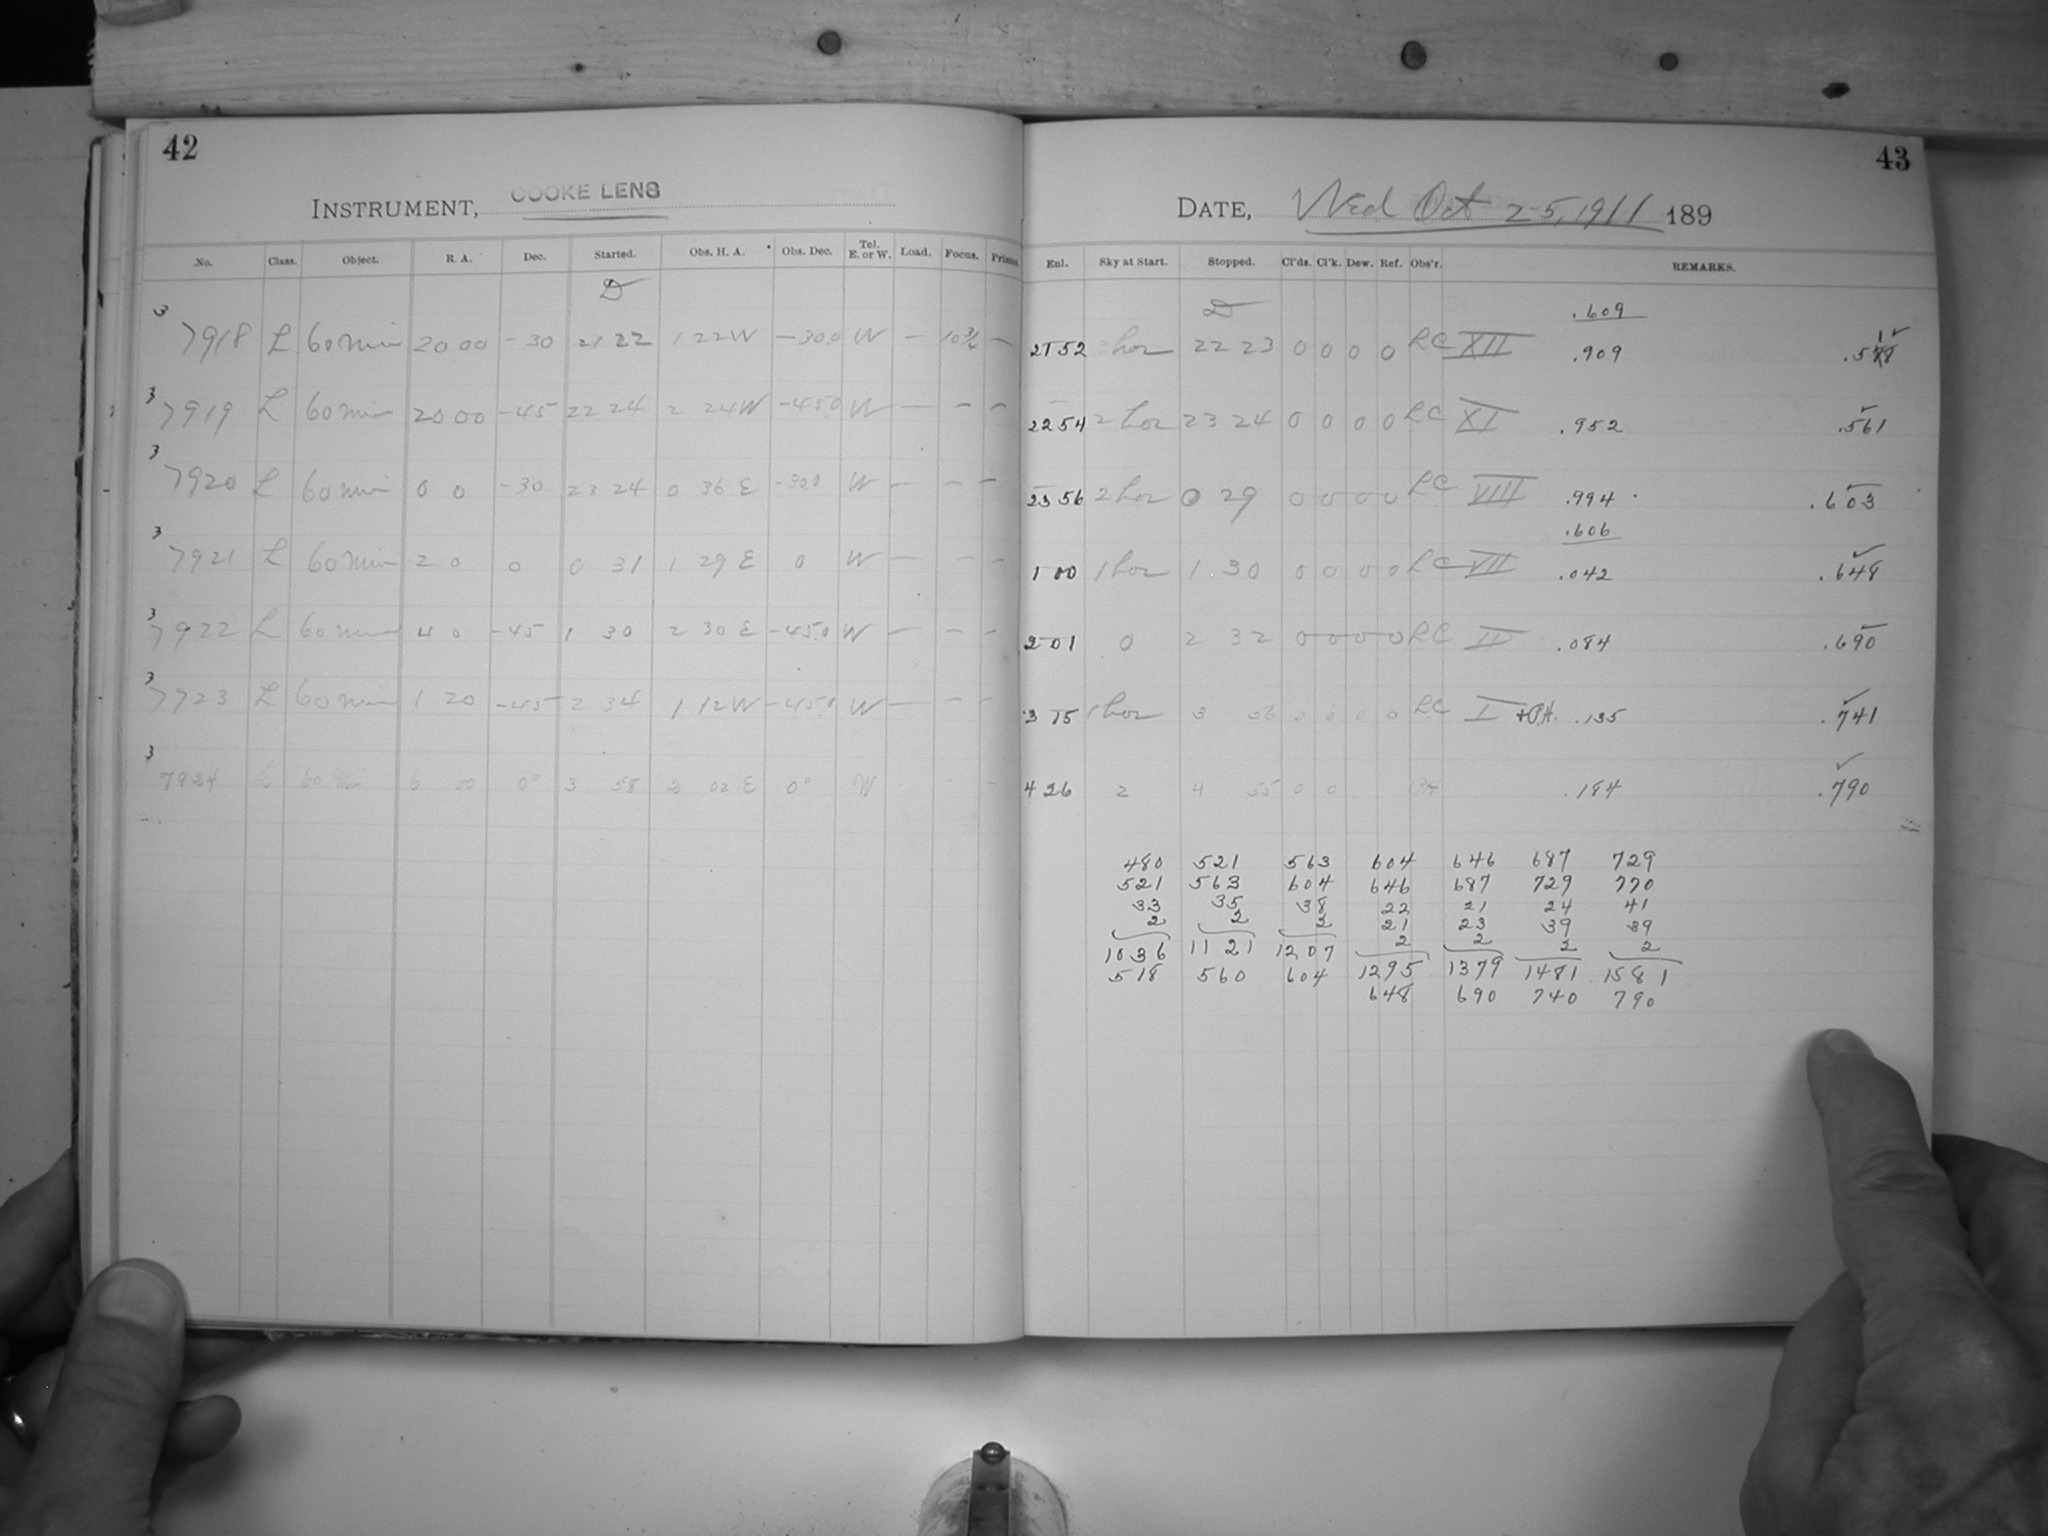 42
INSTRUMENT, COOKE LENS
No. Class. Object. R. A. Dec. Started. Obs. H. A. Obs. Dec. Tel. E. or W. Load. Focus. Prisms.
D
3 7918 L 60 min 20 00 -30 21 22 1 22 W -30.0 W — 10 3/4 —
3 7919 L 60 min 20 00 -45 22 24 2 24 W -45.0 W — — —
3 7920 L 60 min 0 0 -30 23 24 0 36 E -30.0 W — — —
3 7921 L 60 min 2 0 0 0 31 1 29 E 0 W — — —
3 7922 L 60 min 4 0 -45 1 30 2 30 E -45.0 W — — —
3 7923 L 60 min 1 20 -45 2 34 1 12 W -45.0 W — — —
3 7924 L 60 min 6 00 0° 3 58 2 02 E 0° W - -
43
DATE, Wed Oct 25, 1911 189
Enl. Sky at Start. Stopped. Cl'ds. Cl'k. Dew. Ref. Obs'r. REMARKS.
D .609
21 52 hor 22 23 0 0 0 0 LC XII .909
22 54 2 hor 23 24 0 0 0 0 LC XI .952 .561
23 56 2 hor 0 29 0 0 0 0 LC VIII .994 .603
.606
1 00 1 hor 1 30 0 0 0 0 LC VII .042 .648
2 01 0 2 32 0 0 0 0 LC II .084 .690
3 15 1 hor 3 56 0 0 0 0 LC I + P.H. .135 .741
4 26 2 4 55 0 0 PH .184 .790
480 521 563 604 646 687 729
521 563 604 646 687 729 770
33 35 38 22 21 24 41
2 2 2 21 23 39 39
1036 1121 1207 2 2 2 2
518 560 604 1295 1379 1481 1581
648 690 740 790